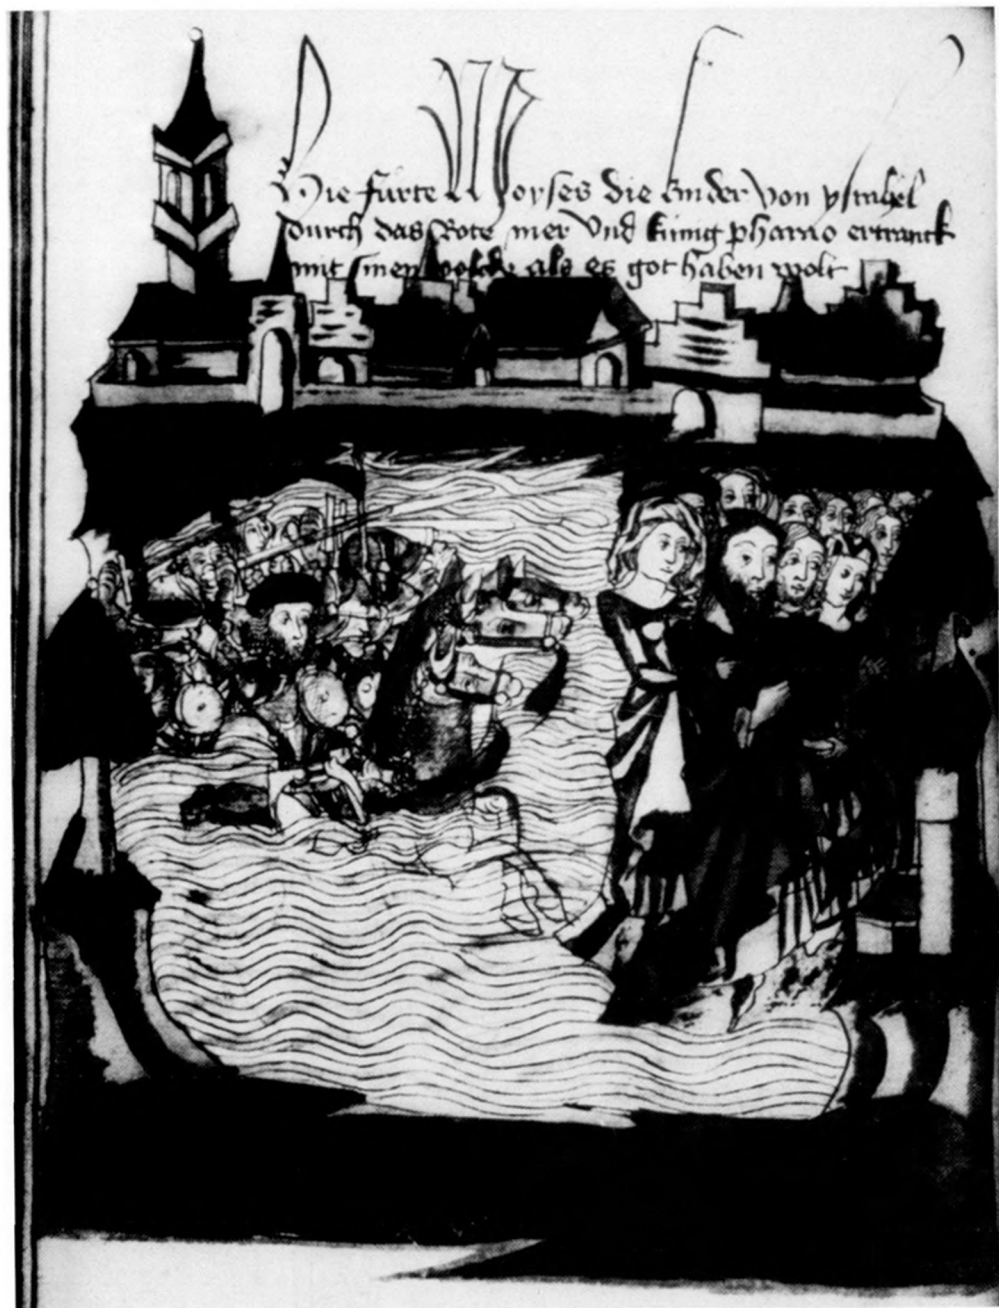 Hie fürte Moyses die kinder von ysrahel
durch das Rote mer vnd künig pharao ertranck
mit sinen volcke als es got haben wolt